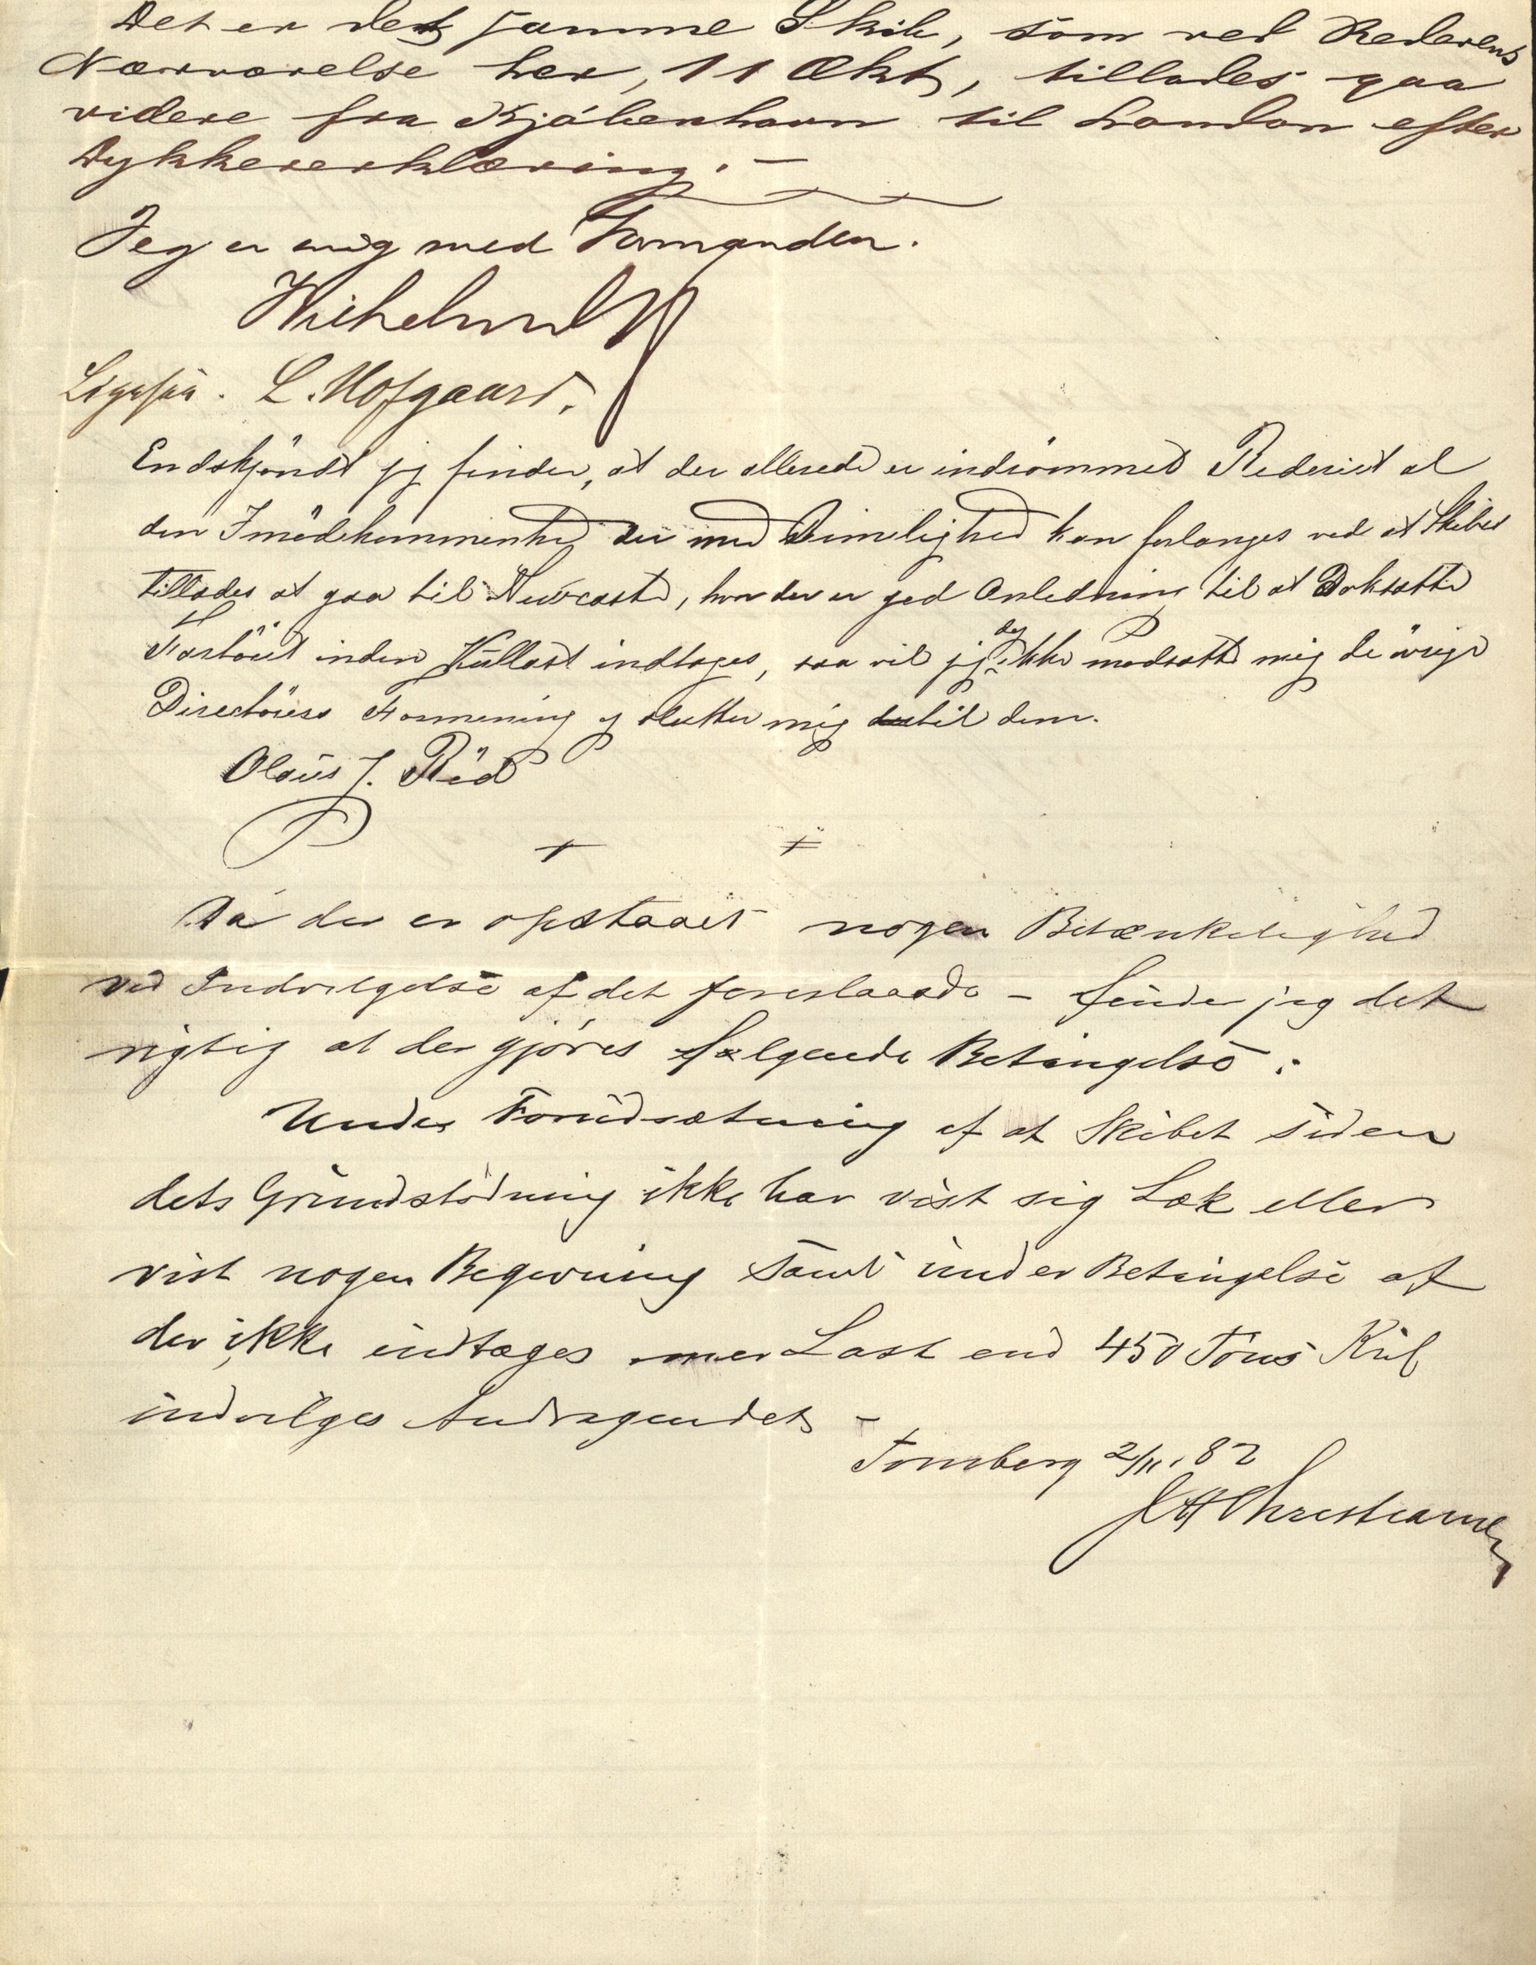 Det er det samme Skib, som ved Rederens
Nærværelse her, 11 Okt, tillodes gaa
videre fra Kjøbenhavn til London efter
Dykkererklæring. —
Jeg er enig med Formanden.
Ligesaa. L. Hofgaard.
Endskjöndt jeg finder, at der allerede er indrömmet Rederiet al
den Imödekommenhed der med Rimelighed kan forlanges ved at Skibet
tillades at gaa til Newcastle, hvor der er god Anledning til at Doksætte
Fartöiet inden Kullast indtages, saa vil jeg dog ikke modsætte mig de övrige
Directörers Formening og slutter mig til dem.
Olaus J. Röd
Da der er opstaaet nogen Betænkelighed
ved Indvilgelse af det foreslaaede – finder jeg det
rigtig at der gjøres følgende Betingelse:
Under Forudsætning af at Skibet siden
dets Grundstödning ikke har vist sig Læk eller
vist nogen Bøining samt under Betingelse af
der ikke indtages mer Last end 450 Tons Kul
indvilges Andragendet —
Tønsberg 2/11. 82
J H Christiansen